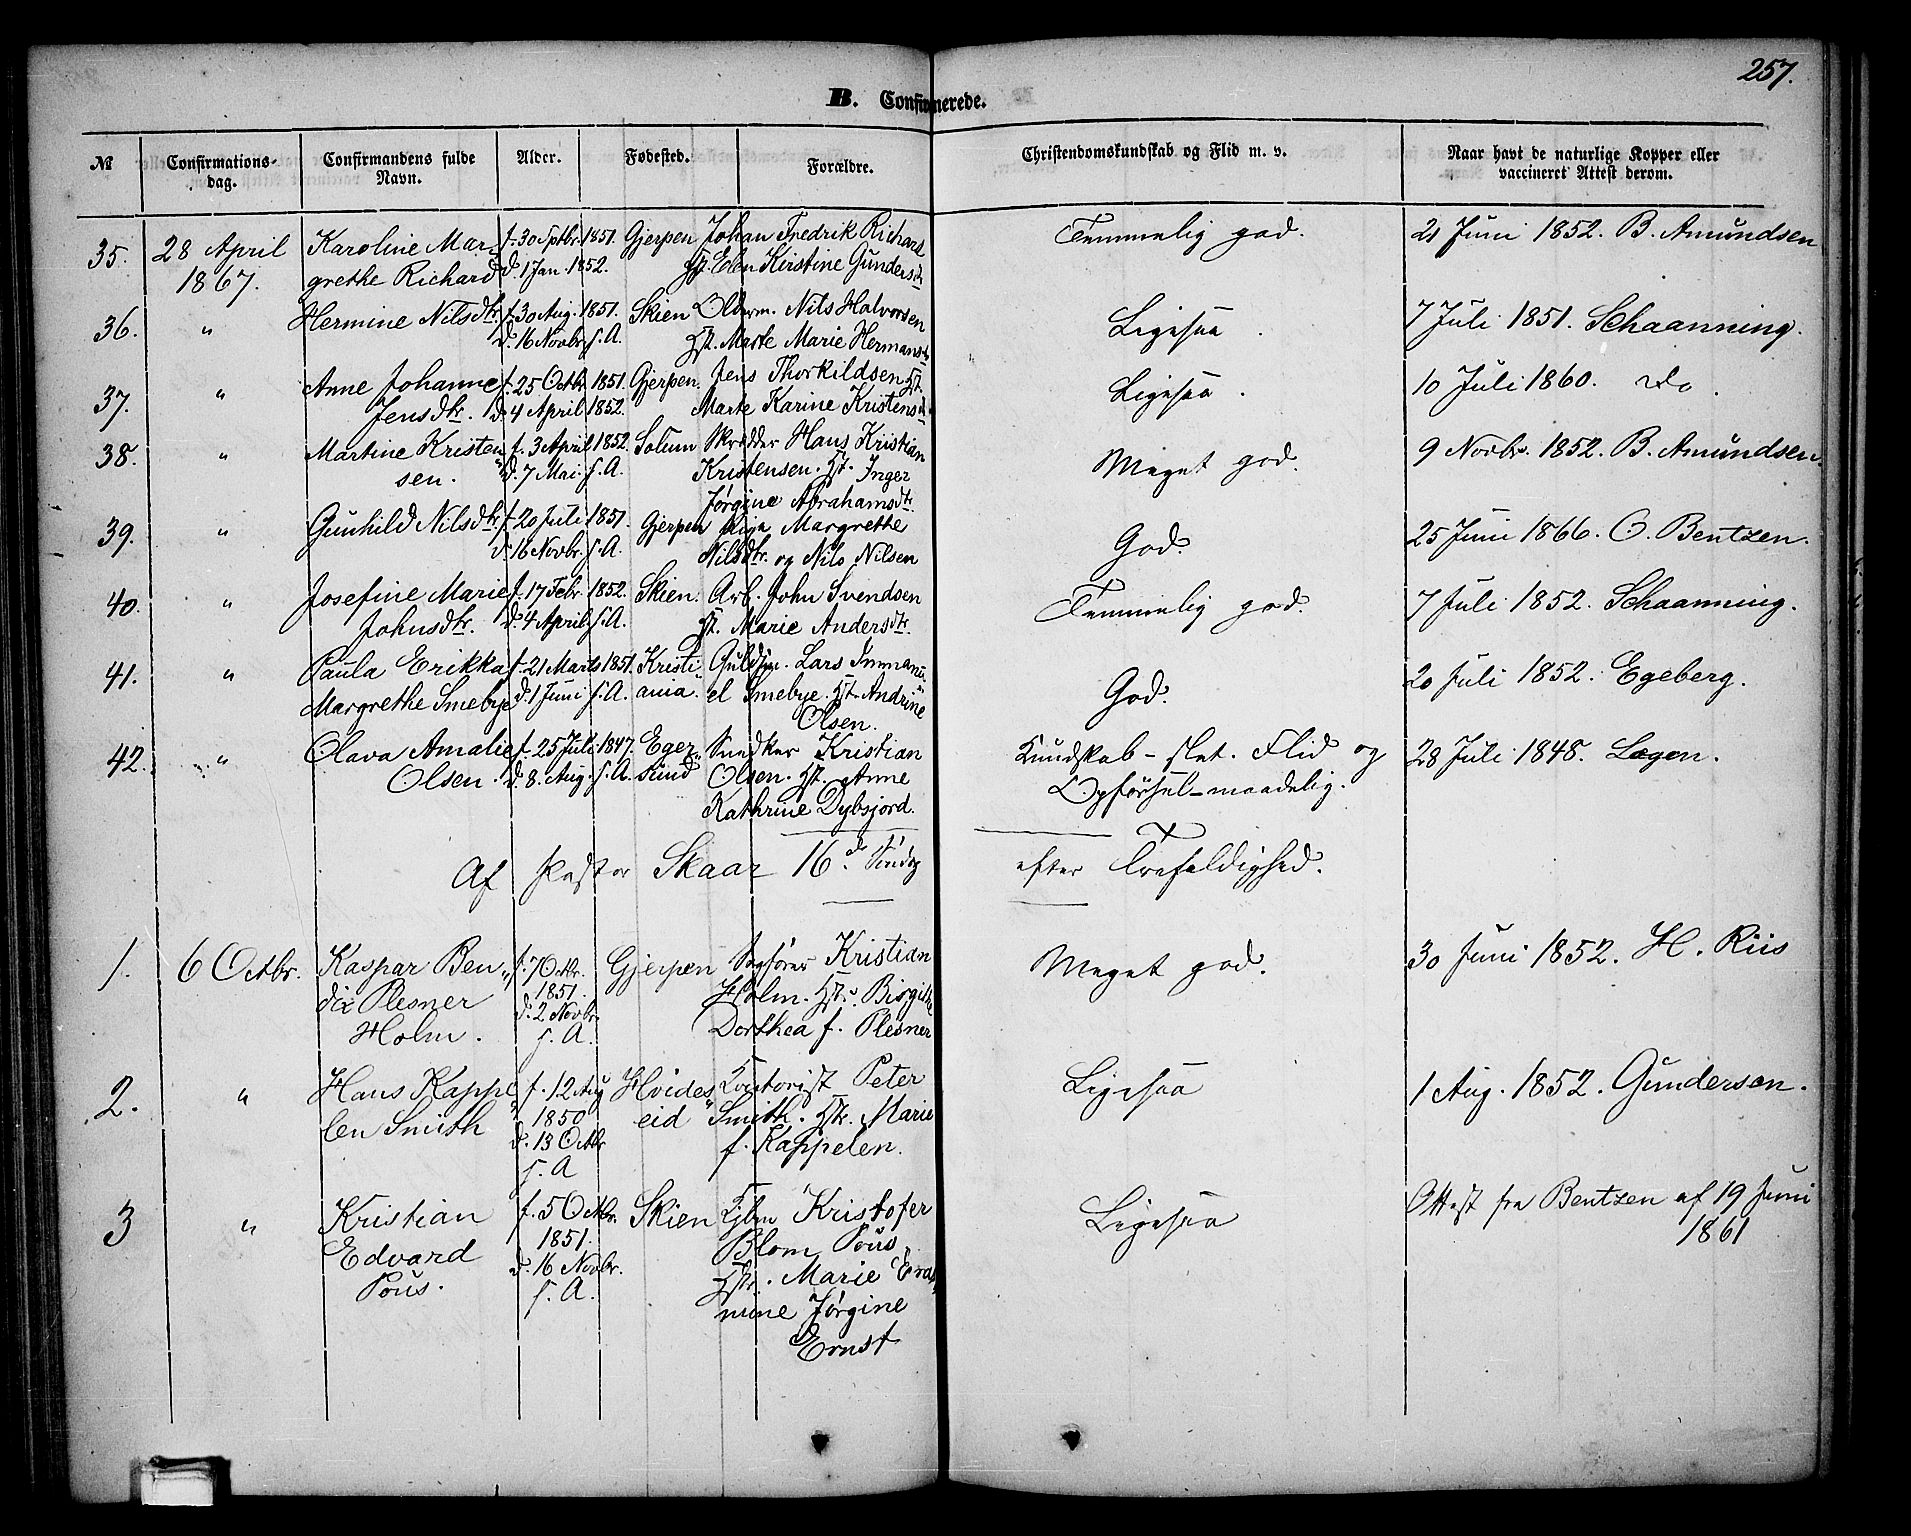 257.
B. Confirmerede.
№ Confirmations- dag. Confirmandens fulde Navn. Alder. Fødested. Forældre. Christendomskundskab og Flid m. v. Naar havt de naturlige Kopper eller vaccineret Attest derom.
35. 28 April Karoline Mar- f. 30 Sptbr. 1851. Gjerpen Johan Fredrik Richard Temmelig god. 21 Juni 1852. B. Amundsen
1867. grethe Richard d. 1 Jan. 1852. Hst. Elen Kirstine Gundersdtr
36. " Hermine Nilsdtr f. 30 Aug. 1851. Skien Olderm. Nils Halvorsen Ligesaa. 7 Juli 1851. Schaanning.
d. 16 Novbr. s. A. Hst. Marte Marie Hermansdtr
37. " Anne Johanne f. 25 Octbr 1851. Gjerpen. Jens Thorkildsen Hst. Ligesaa. 10 Juli 1860. do.
Jensdtr. d. 4 April 1852. Marte Karine Kristensdtr
38. " Martine Kristen f. 3 April 1852. Solum Skrædder Hans Kristian Meget god. 9 Novbr. 1852. B. Amundsen.
sen. d. 7 Mai s. A. Kristensen. Hst. Inger
Jørgine Abrahamsdtr.
39. " Gunhild Nilsdtr. f. 20 Juli 1851. Gjerpen Pige Margrethe God. 25 Juni 1866. O. Bentzen.
d. 16 Novbr. s. A. Nilsdtr. og Nils Nilsen
40. " Josefine Marie f. 17 Febr. 1852. Skien. Arb. John Svendsen Temmelig god. 7 Juli 1852. Schaanning.
Johnsdtr. d. 4 April s. A. Hst. Marie Andersdtr.
41. " Paula Erikka f. 21 Marts 1851. Kristi Guldsm. Lars Immanu God. 20 Juli 1852. Egeberg.
Margrethe Smebye d. 1 Juni s. A. ania. el Smebye. Hst. Andrine
Olsen.
42. " Olava Amalie f. 25 Juli 1847. Eger Snedker Kristian Kundskab - slet. Flid og 28 Juli 1848. Lægen.
Olsen. d. 8. Aug. s. A. sund Olsen. Hst. Anne Opførsel - maadelig.
Kathrine Dybsjord.
Af Pastor Skaar 16de Søndag efter Trefoldighed.
1. 6 Octbr. Kaspar Ben f. 7 Octbr. Gjerpen Sagfører Kristian Meget god. 30 Juni 1852. H. Riis
dix Plesner 1851. Holm. Hst. Birgithe
Holm. d. 2 Novbr. Dorthea f. Plesner
s. A.
2. " Hans Kappe f. 12 Aug Hvides Ligesaa 1 Aug. 1852. Gundersen.
Peter
len Smith 1850 eid Smith. Hstr. Marie
d. 13 Octbr f. Kappelen.
s. A
3 " Kristian f. 5 Octbr. Skien Kjbm Kristofer Ligesaa Attest fra Bentzen af 19 Juni
Edvard 1851. Blom Pøus 1861
Pøus. d. 16 Novbr. Hstr. Marie Eras
s. A. mine Jørgine
Ernst